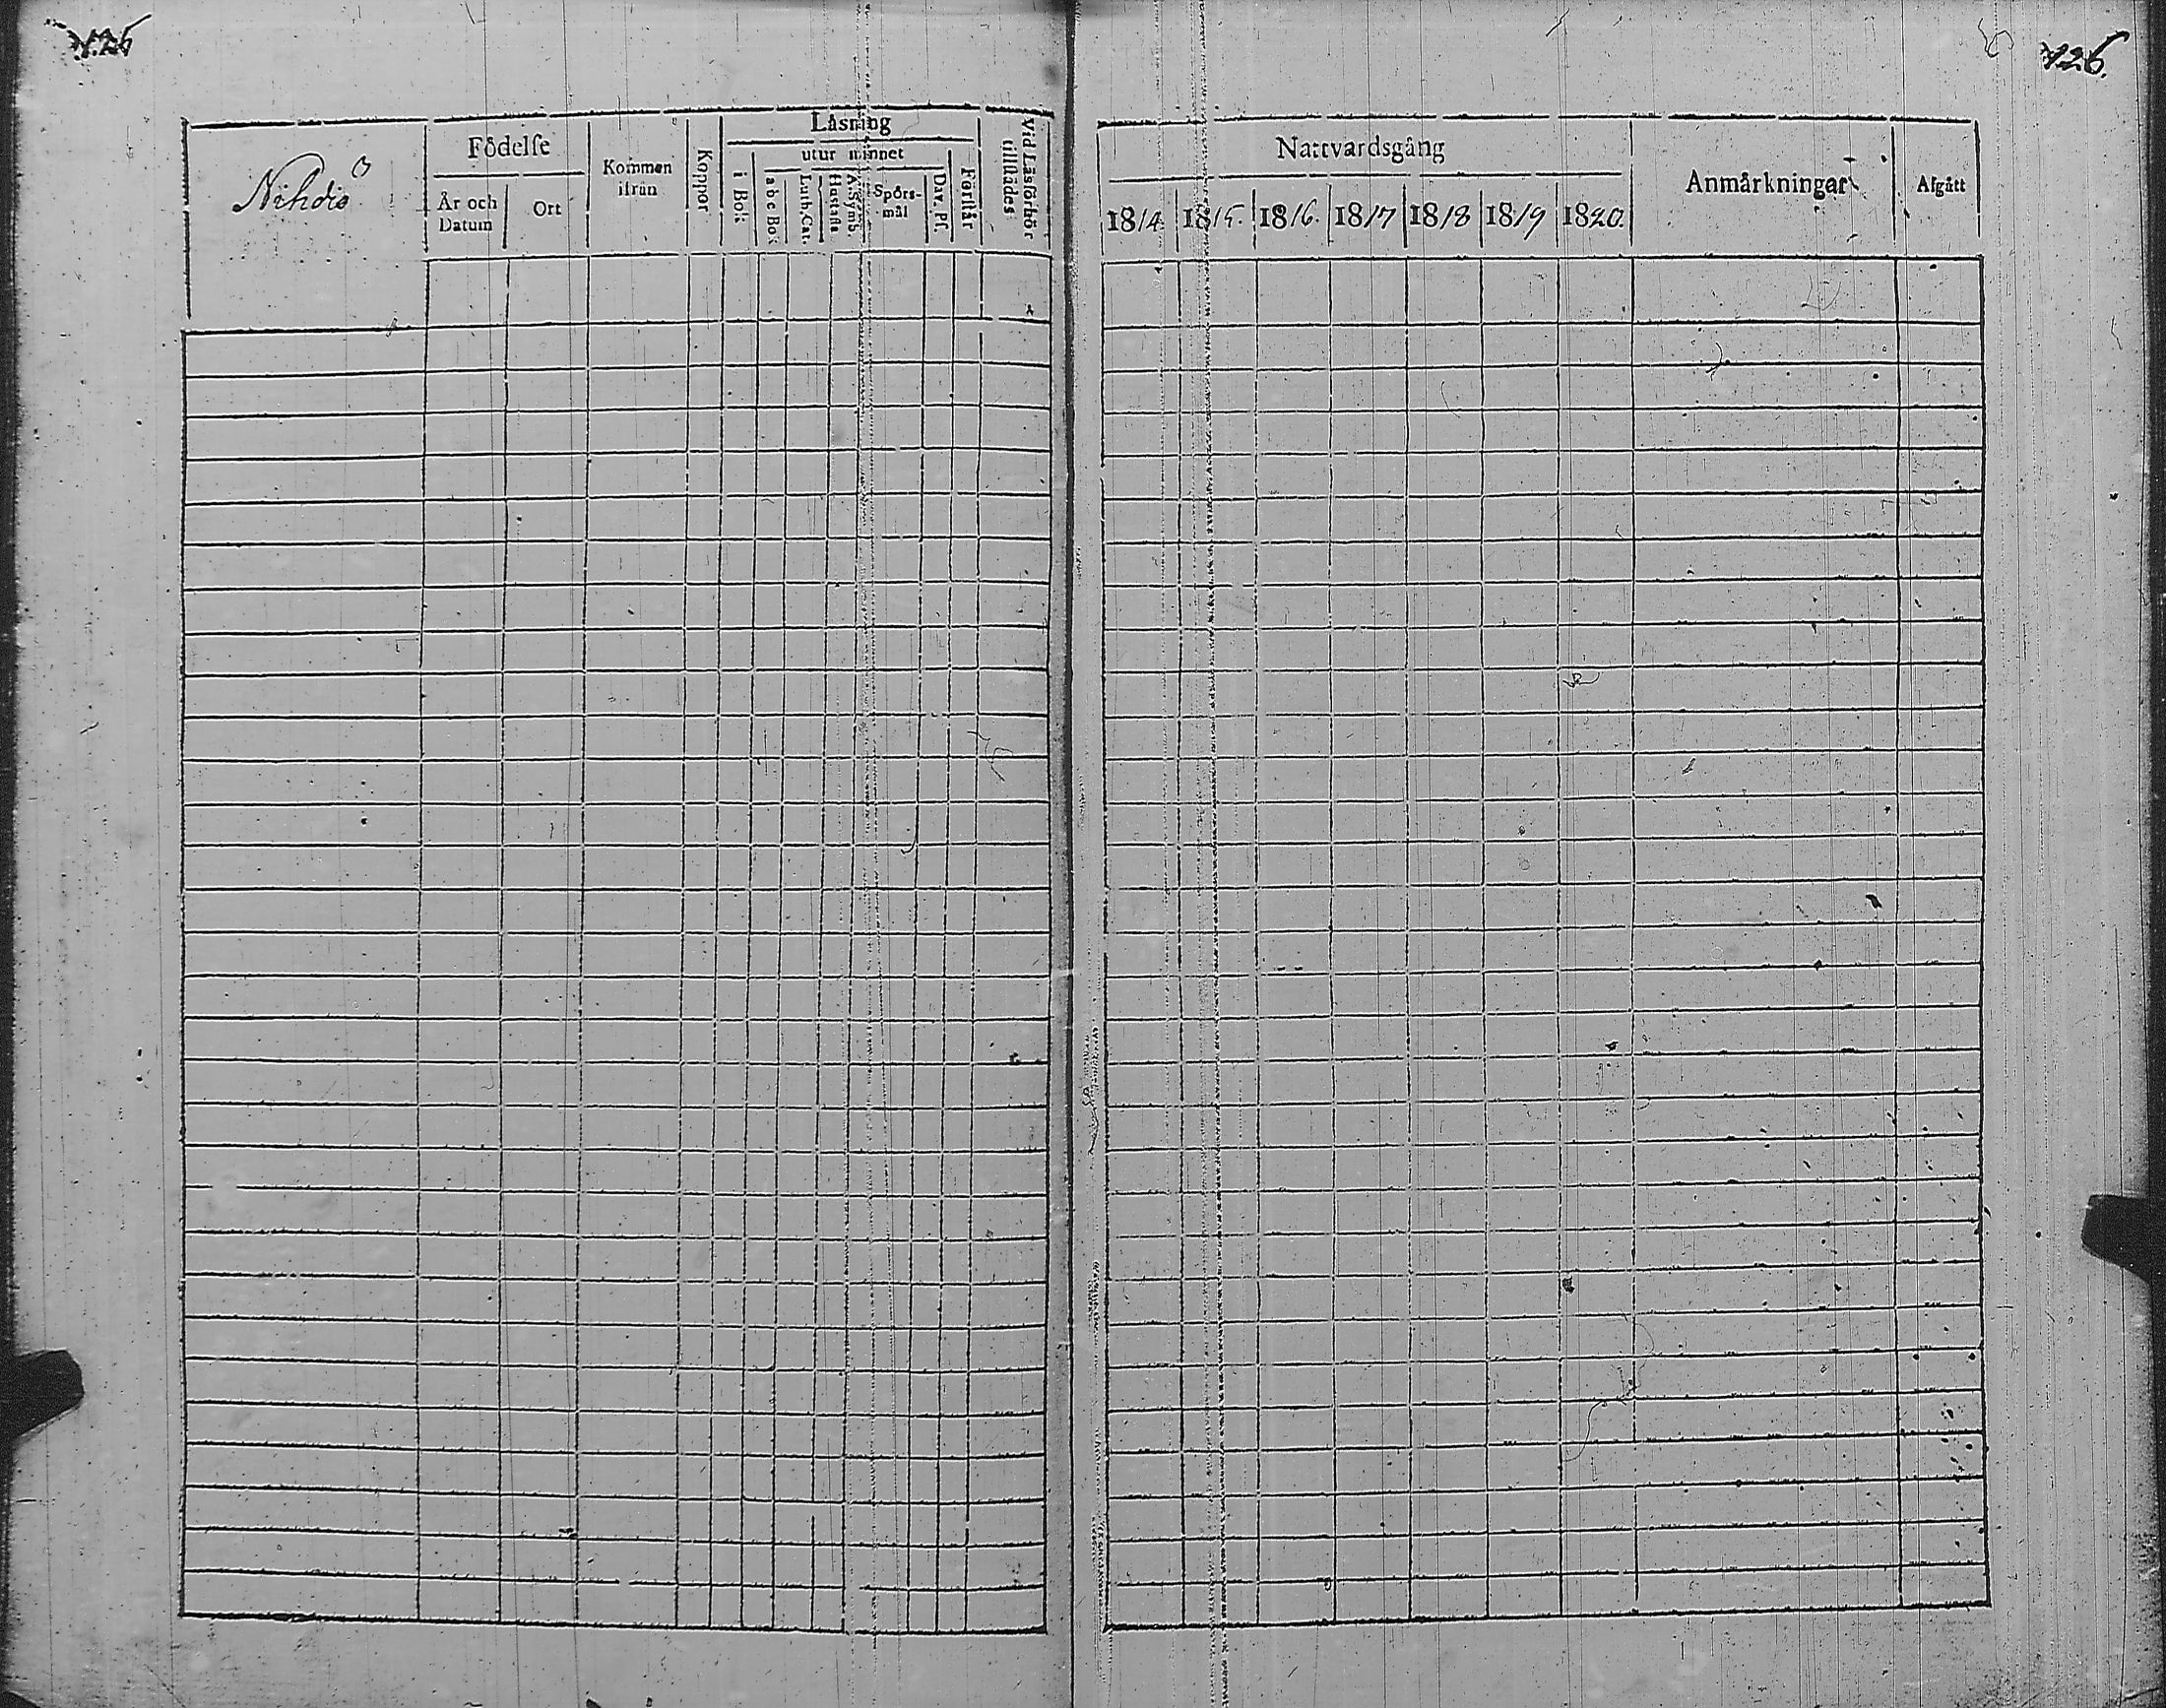 126
126.
Nihdis
Födelſe
År och Datum
Ort
Kommen ifrån
Koppor
Läsning
i Bok
utur minnet
a b c Bok
Luth. Cat.
Hustafla
A. Symb.
Spörsmål
Dav. Pſ.
Förſtår
Vid Läsförhör tillſtädes
Nattvardsgång
1814
1815.
1816.
1817
1818
1819
1820.
Anmärkningar
Afgått